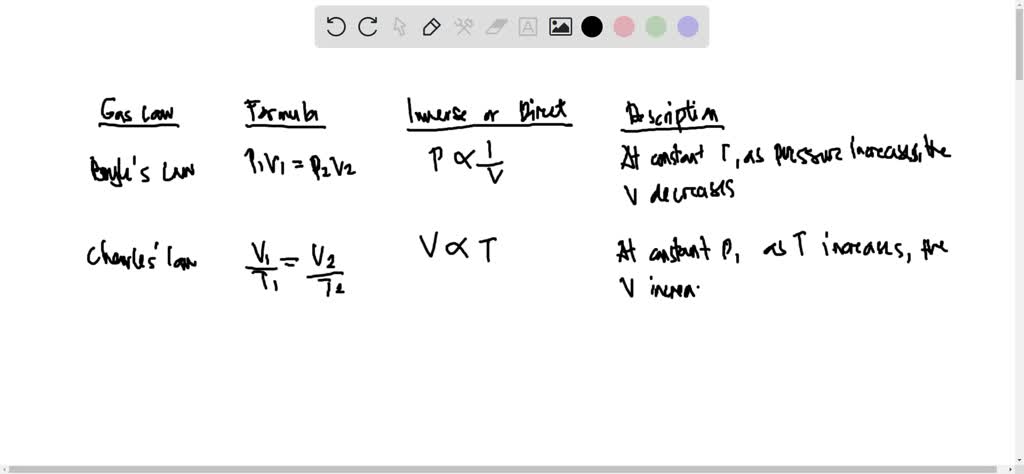 Gas Law Formula Inverse or Direct Description
Boyle's Law P₁V₁ = P₂V₂ P ∝ 1/V At constant T, as pressure increases, the
V decreases
Charles' law V₁/T₁ = V₂/T₂ V ∝ T At constant P, as T increases, the
V increa